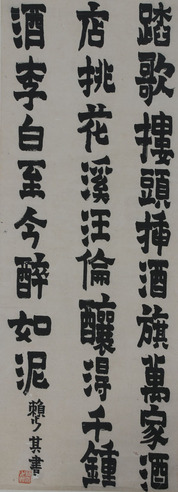 踏歌樓頭插酒旗萬家酒
店桃花溪汪倫釀得千鍾
酒李白至今醉如泥
賴少其書